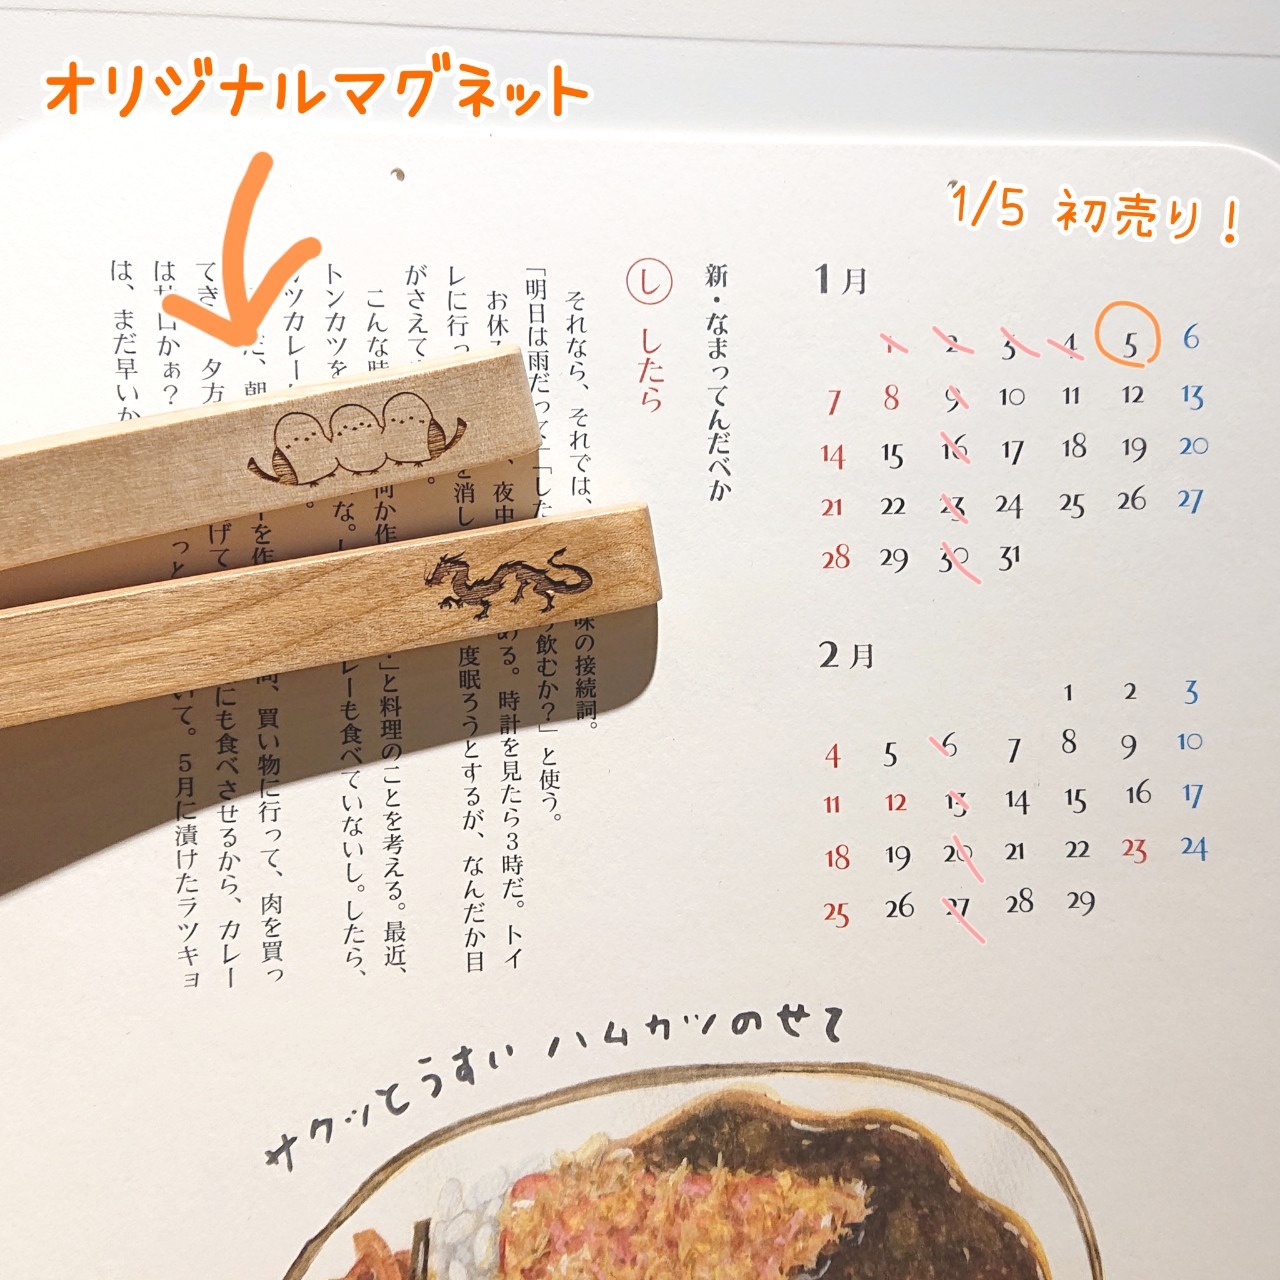 オリジナルマグネット
1/5 初売り!
新・なまってんだべか
し したら
それなら、それでは、 味の接続詞。
「明日は雨だって、「した 飲むか?」と使う。
お休 、夜中 める。時計を見たら3時だ。トイ
レに行っ を消し 度眠ろうとするが、なんだか目
がさえて 。
こんな時 何か作 」と料理のことを考える。最近、
トンカツを な。 レーも食べていないし。したら、
ツカレー 。
だ、朝 ーを作 間、買い物に行って、肉を買っ
てき 夕方 げて にも食べさせるから、カレー
は 口かぁ? っと いて。5月に漬けたラッキョ
は、まだ早いか
1月
1 2 3 4 5 6
7 8 9 10 11 12 13
14 15 16 17 18 19 20
21 22 23 24 25 26 27
28 29 30 31
2月
1 2 3
4 5 6 7 8 9 10
11 12 13 14 15 16 17
18 19 20 21 22 23 24
25 26 27 28 29
サクッとうすい ハムカツのせて